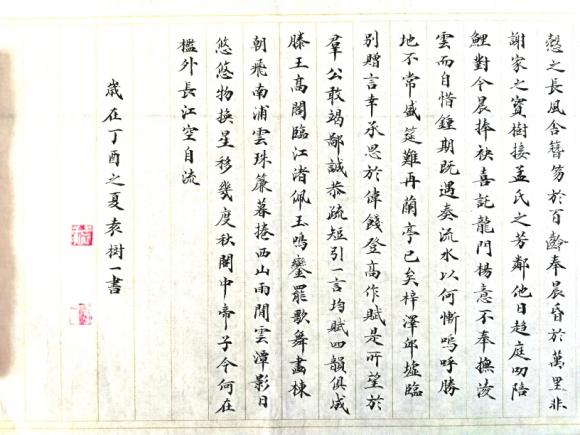 愨之長風舍簪笏於百齡奉晨昏於萬里非
謝家之寶樹接孟氏之芳鄰他日趨庭叨陪
鯉對今晨捧袂喜託龍門楊意不奉撫淩
雲而自惜鍾期既遇奏流水以何慚嗚呼勝
地不常盛筵難再蘭亭已矣梓澤邱墟臨
別贈言幸承恩於偉餞登高作賦是所望於
羣公敢竭鄙誠恭疏短引一言均賦四韻俱成
滕王高閣臨江渚佩玉鳴鑾罷歌舞畫棟
朝飛南浦雲珠簾暮捲西山雨閒雲潭影日
悠悠物換星移幾度秋閣中帝子今何在
檻外長江空自流
歲在丁酉之夏袁樹一書